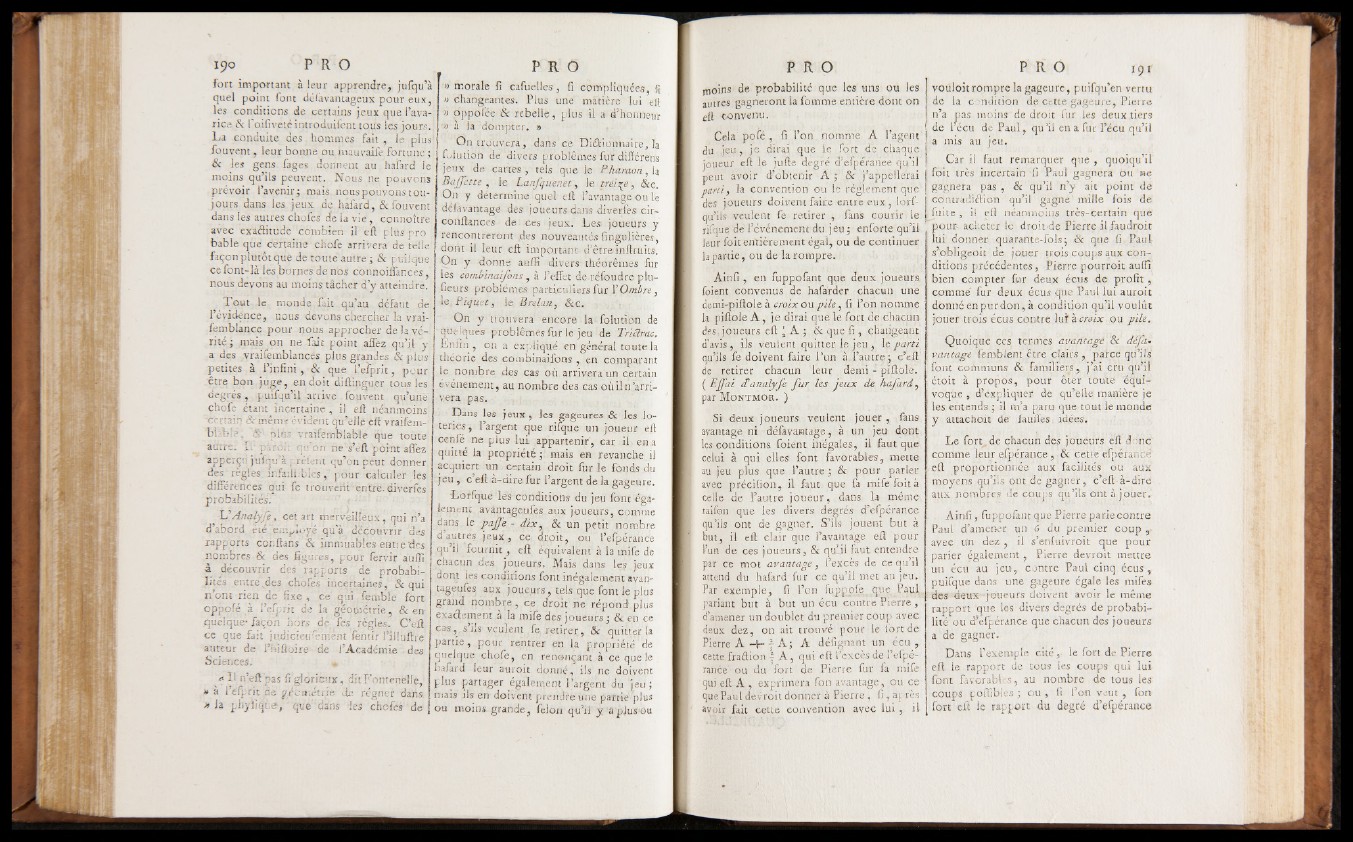 190 P R O
fort important à leur apprendre, juſqu'à
quel point ſont déſavantageux pour eux,
les conditions de certains jeux que l'ava-
rice & l'oiſiveté introduiſent tous les jours.
La conduite des hommes fait, le plus
ſouvent, leur bonne ou mauvaiſe fortune ;
& les gens ſages donnent au haſard le
moins qu'ils peuvent. Nous ne pouvons
prévoir l'avenir ; mais nous pouvons tou-
jours dans les jeux de haſard, & ſouvent
dans les autres choſes de la vie, connoître
avec exactitude combien il eſt plus pro
bable que certaine choſe arrivera de telle
façon plutôt que de toute autre ; & puiſque
ce ſont-là les bornes de nos connoiſſances,
nous devons au moins tâcher d'y atteindre.
Tout le monde ſait qu'au défaut de
l'évidence, nous devons chercher la vrai-
ſemblance pour nous approcher de la vé-
rité ; mais on ne ſait point aſſez qu'il y
a des vraiſemblances plus grandes & plus
petites à l'infini, & que l'eſprit, pour
être bon juge, en doit diſtinguer tous les
degrés, puiſqu'il arrive ſouvent qu'une
choſe étant incertaine, il eſt néanmoins
certain & même évident qu'elle eſt vraiſem-
blable, & plus vraiſemblable que toute
autre. Il paroît qu'on ne s'eſt point aſſez
apperçu juſqu'à préſent qu'on peut donner
des règles infaillibles, pour calculer les
différences qui ſe trouvent entre diverſes
probabilités.
L'Analyſe, cet art merveilleux, qui n'a
d'abord été employé qu'à découvrir des
rapports conſtans & immuables entre des
nombres & des figures, pour ſervir auſſi
à découvrir des rapports de probabi-
lités entre des choſes incertaines, & qui
n'ont rien de fixe, ce qui ſemble fort
oppoſé à l'eſprit de la géométrie, & en
quelque façon hors de ſes règles. C'eſt
ce que fait judicieuſement ſentir l'illuſtre
auteur de l'hiſtoire de l'Académie des
Sciences.
« Il n'eſt pas ſi glorieux, dit Fontenelle,
» à l'eſprit de géométrie de régner dans
» la phyſique, que dans les choſes de
P R O
» morale ſi caſuelles, ſi compliquées, ſi
» changeantes. Plus une matière lui eſt
» oppoſée & rebelle, plus il a d'honneur
» à la dompter. »
On trouvera, dans ce Dictionnaire, la
ſolution de divers problêmes ſur différens
jeux de cartes, tels que le Pharaon, la
Baſſette, le Lanſquenet, le treize, &c.
On y détermine quel eſt l'avantage ou le
déſavantage des joueurs dans diverſes cir-
conſtances de ces jeux. Les joueurs y
rencontreront des nouveautés ſingulières,
dont il leur eſt important d'être inſtruits.
On y donne auſſi divers théorêmes ſur
les combinaiſons, à l'effet de réſoudre plu-
ſieurs problêmes particuliers ſur l'Ombre,
le Piquet, le Brelan, &c.
On y trouvera encore la ſolution de
quelques problêmes ſur le jeu de Trictrac.
Enfin, on a expliqué en général toute la
théorie des combinaiſons, en comparant
le nombre des cas où arrivera un certain
événement, au nombre des cas où il n'arri-
vera pas.
Dans les jeux, les gageures & les lo-
teries, l'argent que riſque un joueur eſt
cenſé ne plus lui appartenir, car il en a
quitté la propriété ; mais en revanche il
acquiert un certain droit ſur le fonds du
jeu, c'eſt-à-dire ſur l'argent de la gageure.
Lorſque les conditions du jeu ſont éga-
lement avantageuſes aux joueurs, comme
dans le paſſe-dix, & un petit nombre
d'autres jeux, ce droit, ou l'eſpérance
qu'il fournit, eſt équivalent à la miſe de
chacun des joueurs. Mais dans les jeux
dont les conditions ſont inégalement avan-
tageuſes aux joueurs, tels que ſont le plus
grand nombre, ce droit ne répond plus
exactement à la miſe des joueurs ; & en ce
cas, s'ils veulent ſe retirer, & quitter la
partie, pour rentrer en la propriété de
quelque choſe, en renonçant à ce que le
haſard leur auroit donné, ils ne doivent
plus partager également l'argent du jeu ;
mais ils en doivent prendre une partie plus
ou moins grande, ſelon qu'il y a plus ou
P R O
moins de probabilité que les uns ou les
autres gagneront la ſomme entière dont on
eſt convenu.
Cela poſé, ſi l'on nomme A l'agent
du jeu, je dirai que le ſort de chaque
joueur eſt le juſte degré d'eſpérance qu'il
peut avoir d'obtenir A ; & j'appellerai
parti, la convention ou le réglement que
des joueurs doivent faire entre eux, lorſ-
qu'ils veulent ſe retirer, ſans courir le
riſque de l'événement du jeu ; enſorte qu'il
leur ſoit entièrement égal, ou de continuer
la partie, ou de la rompre.
Ainſi, en ſuppoſant que deux joueurs
ſoient convenus de haſarder chacun une
demi-piſtole à croix ou pile, ſi l'on nomme
la piſtole A, je dirai que le ſort de chacun
des joueurs eſt ½ A ; & que ſi, changeant
d'avis, ils veulent quitter le jeu, le parti
qu'ils ſe doivent faire l'un à l'autre ; c'eſt
de retirer chacun leur demi-piſtole.
( Eſſai d'analyſe ſur les jeux de haſard,
par MONTMOR. )
Si deux joueurs veulent jouer, ſans
avantage ni déſavantage, à un jeu dont
les conditions ſoient inégales, il faut que
celui à qui elles ſont favorables, mette
au jeu plus que l'autre ; & pour parler
avec préciſion, il faut que ſa miſe ſoit à
celle de l'autre joueur, dans la même
raiſon que les divers degrés d'eſpérance
qu'ils ont de gagner. S'ils jouent but à
but, il eſt clair que l'avantage eſt pour
l'un de ces joueurs, & qu'il faut entendre
par ce mot avantage, l'excès de ce qu'il
attend du haſard ſur ce qu'il met au jeu.
Par exemple, ſi l'on ſuppoſe que Paul
pariant but à but un écu contre Pierre,
d'amener un doublet du premier coup avec
deux dez, on ait trouvé pour le ſort de
Pierre A + ⅔ A ; A déſignant un écu,
cette fraction ⅔ A, qui eſt l'excès de l'eſpé-
rance ou du ſort de Pierre ſur ſa miſe
qui eſt A, exprimera ſon avantage, ou ce
que Paul devroit donner à Pierre, ſi, après
avoir fait cette convention avec lui, il
P R O 191
vouloit rompre la gageure, puiſqu'en vertu
de la condition de cette gageure, Pierre
n'a pas moins de droit ſur les deux tiers
de l'écu de Paul, qu'il en a ſur l'écu qu'il
a mis au jeu.
Car il faut remarquer que, quoiqu'il
ſoit très incertain ſi Paul gagnera ou ne
gagnera pas, & qu'il n'y ait point de
contradiction qu'il gagne mille fois de
ſuite, il eſt néanmoins très-certain que
pour acheter le droit de Pierre il faudroit
lui donner quarante-ſols ; & que ſi Paul
s'obligeoit de jouer trois coups aux con-
ditions précédentes, Pierre pourroit auſſi
bien compter ſur deux écus de profit,
comme ſur deux écus que Paul lui auroit
donné en pur don, à condition qu'il voulût
jouer trois écus contre lui à croix ou pile.
Quoique ces termes avantage & déſa-
vantage ſemblent être clairs, parce qu'ils
ſont communs & familiers, j'ai cru qu'il
étoit à propos, pour ôter toute équi-
voque, d'expliquer de qu'elle manière je
les entends ; il m'a paru que tout le monde
y attachoit de fauſſes idées.
Le ſort de chacun des joueurs eſt donc
comme leur eſpérance, & cette eſpérance
eſt proportionnée aux facilités ou aux
moyens qu'ils ont de gagner, c'eſt-à-dire
aux nombres de coups qu'ils ont à jouer.
Ainſi, ſuppoſant que Pierre parie contre
Paul d'amener un 6 du premier coup,
avec un dez, il s'enſuivroit que pour
parier également, Pierre devroit mettre
un écu au jeu, contre Paul cinq écus,
puiſque dans une gageure égale les miſes
des deux joueurs doivent avoir le même
rapport que les divers degrés de probabi-
lité ou d'eſpérance que chacun des joueurs
a de gagner.
Dans l'exemple cité, le ſort de Pierre
eſt le rapport de tous les coups qui lui
ſont favorables, au nombre de tous les
coups poſſibles ; ou, ſi l'on veut, ſon
ſort eſt le rapport du degré d'eſpérance